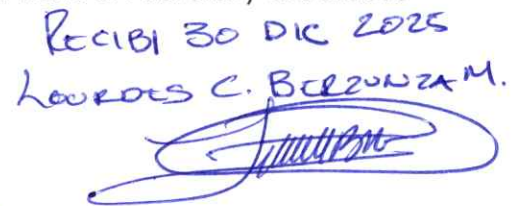 RECIBI 30 DIC 2025
LOURDES C. BERZUNZA M.